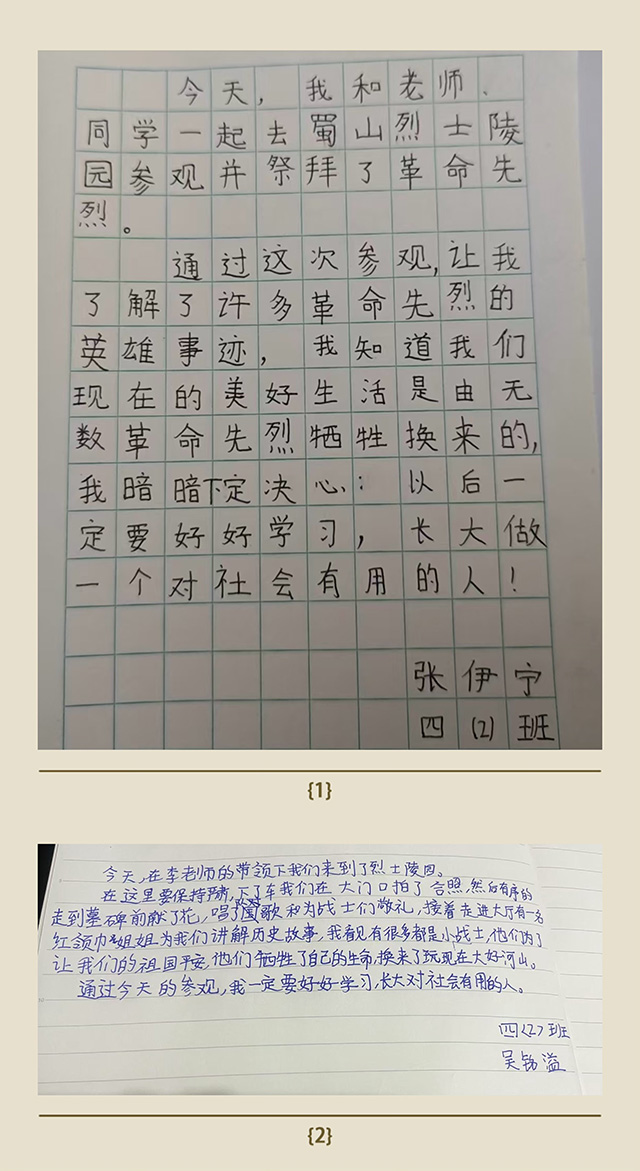 今天，我和老师、
同学一起去蜀山烈士陵
园参观并祭拜了革命先
烈。
通过这次参观,让我
了解了许多革命先烈的
英雄事迹，我知道我们
现在的美好生活是由无
数革命先烈牺牲换来的,
我暗暗下定决心：以后一
定要好好学习，长大做
一个对社会有用的人！
张伊宁
四(2)班
{1}
今天,在李老师的带领下我们来到了烈士陵园。
在这里要保持肃静,下了车我们在大门口拍了合照,然后有序的
走到墓碑前献了花,唱了国歌和为战士们敬礼,接着走进大厅有一名
红领巾姐姐为我们讲解历史故事,我看见有很多都是小战士,他们为了
让我们的祖国平安,他们牺牲了自己的生命,换来了现在大好河山。
通过今天的参观,我一定要好好学习,长大对社会有用的人。
四<2>班
吴 溢
{2}